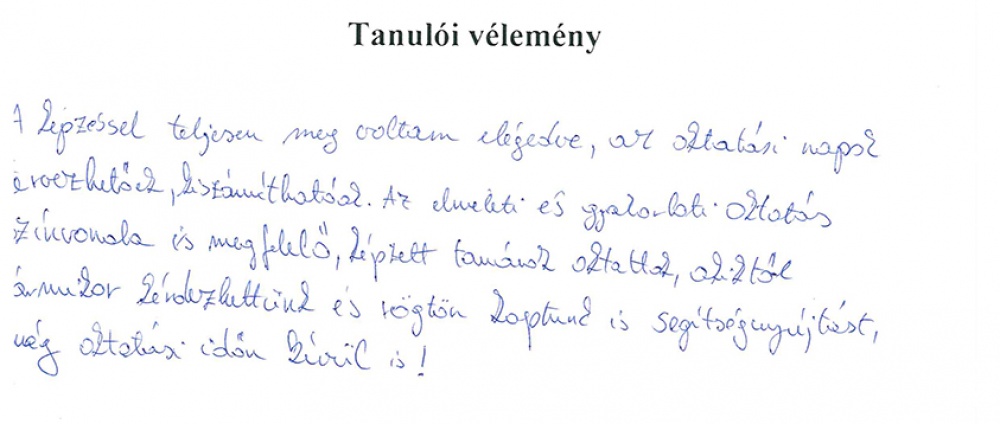 Tanulói vélemény
A képzéssel teljesen meg voltam elégedve, az oktatási napok
tervezhetőek, kiszámíthatóak. Az elméleti és gyakorlati oktatás
színvonala is megfelelő, képzett tanárok oktattak, akiktől
bármikor kérdezhettünk és rögtön kaptunk is segítségnyújtást,
még oktatási időn kívül is!